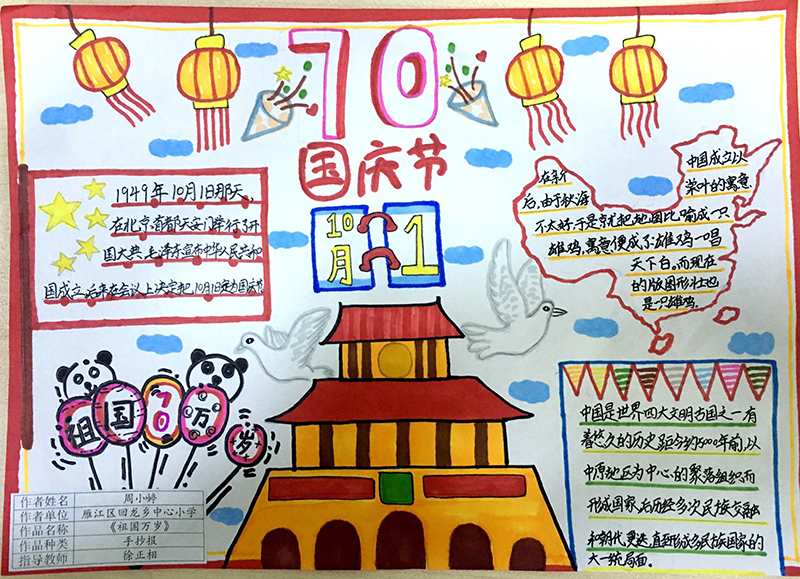 70
国庆节
10月 1
1949年10月1日那天,
在北京首都天安门举行了开
国大典,毛泽东宣布中华人民共和
国成立,后年在会议上决定把,10月1日定为国庆节
中国成立以
茶叶的寓意,
在新
后,由于秋海
不太好,于是就把地图比喻成一只
雄鸡,寓意便成了:雄鸡一唱
天下白。而现在
的版图形壮也
是一只雄鸡。
祖国70万岁
中国是世界四大文明古国之一有
着悠久的历史,距今约5000年前,以
中原地区为中心的聚落组织而
形成国家,后历经多次民族交融
和朝代更迭,直至形成多民族国家的
大一统局面。
作者姓名 周小婷
作者单位 雁江区回龙乡中心小学
作品名称 《祖国万岁》
作品种类 手抄报
指导教师 徐正相